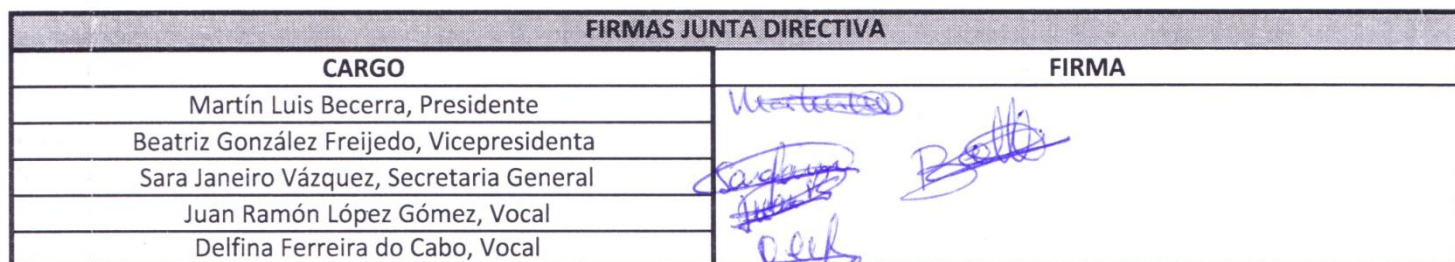 FIRMAS JUNTA DIRECTIVA
CARGO FIRMA
Martín Luis Becerra, Presidente
Beatriz González Freijedo, Vicepresidenta
Sara Janeiro Vázquez, Secretaria General
Juan Ramón López Gómez, Vocal
Delfina Ferreira do Cabo, Vocal